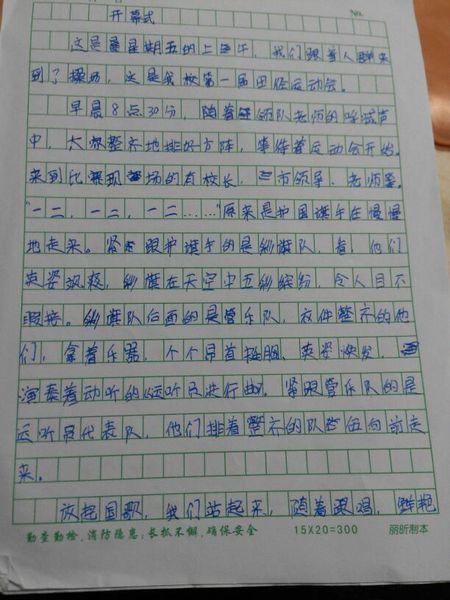 No.
开幕式
这是星期五的上午，我们跟着人群来
到了操场，这是我校第一届田径运动会。
早晨8点30分，随着领队老师的呼喊声
中，大家整齐地排好方阵，等待着运动会开始。
来到比赛现场的有校长，市领导，老师等。
“一二，一二，一二……”原来是护国旗手在慢慢
地走来。紧跟护旗手的是彩旗队，看，他们
英姿飒爽，彩旗在天空中五彩缤纷，令人目不
暇接。彩旗队后面的是管乐队，衣件整齐的他
们，拿着乐器，个个昂首挺胸，英姿焕发，
演奏着动听的《运动员进行曲》。紧跟管乐队的是
运动员代表队，他们排着整齐的队伍向前走
来。
放起国歌，我们站起来，随着
勤查勤检、消防隐患；长抓不懈、确保安全 15X20=300 丽昕制本